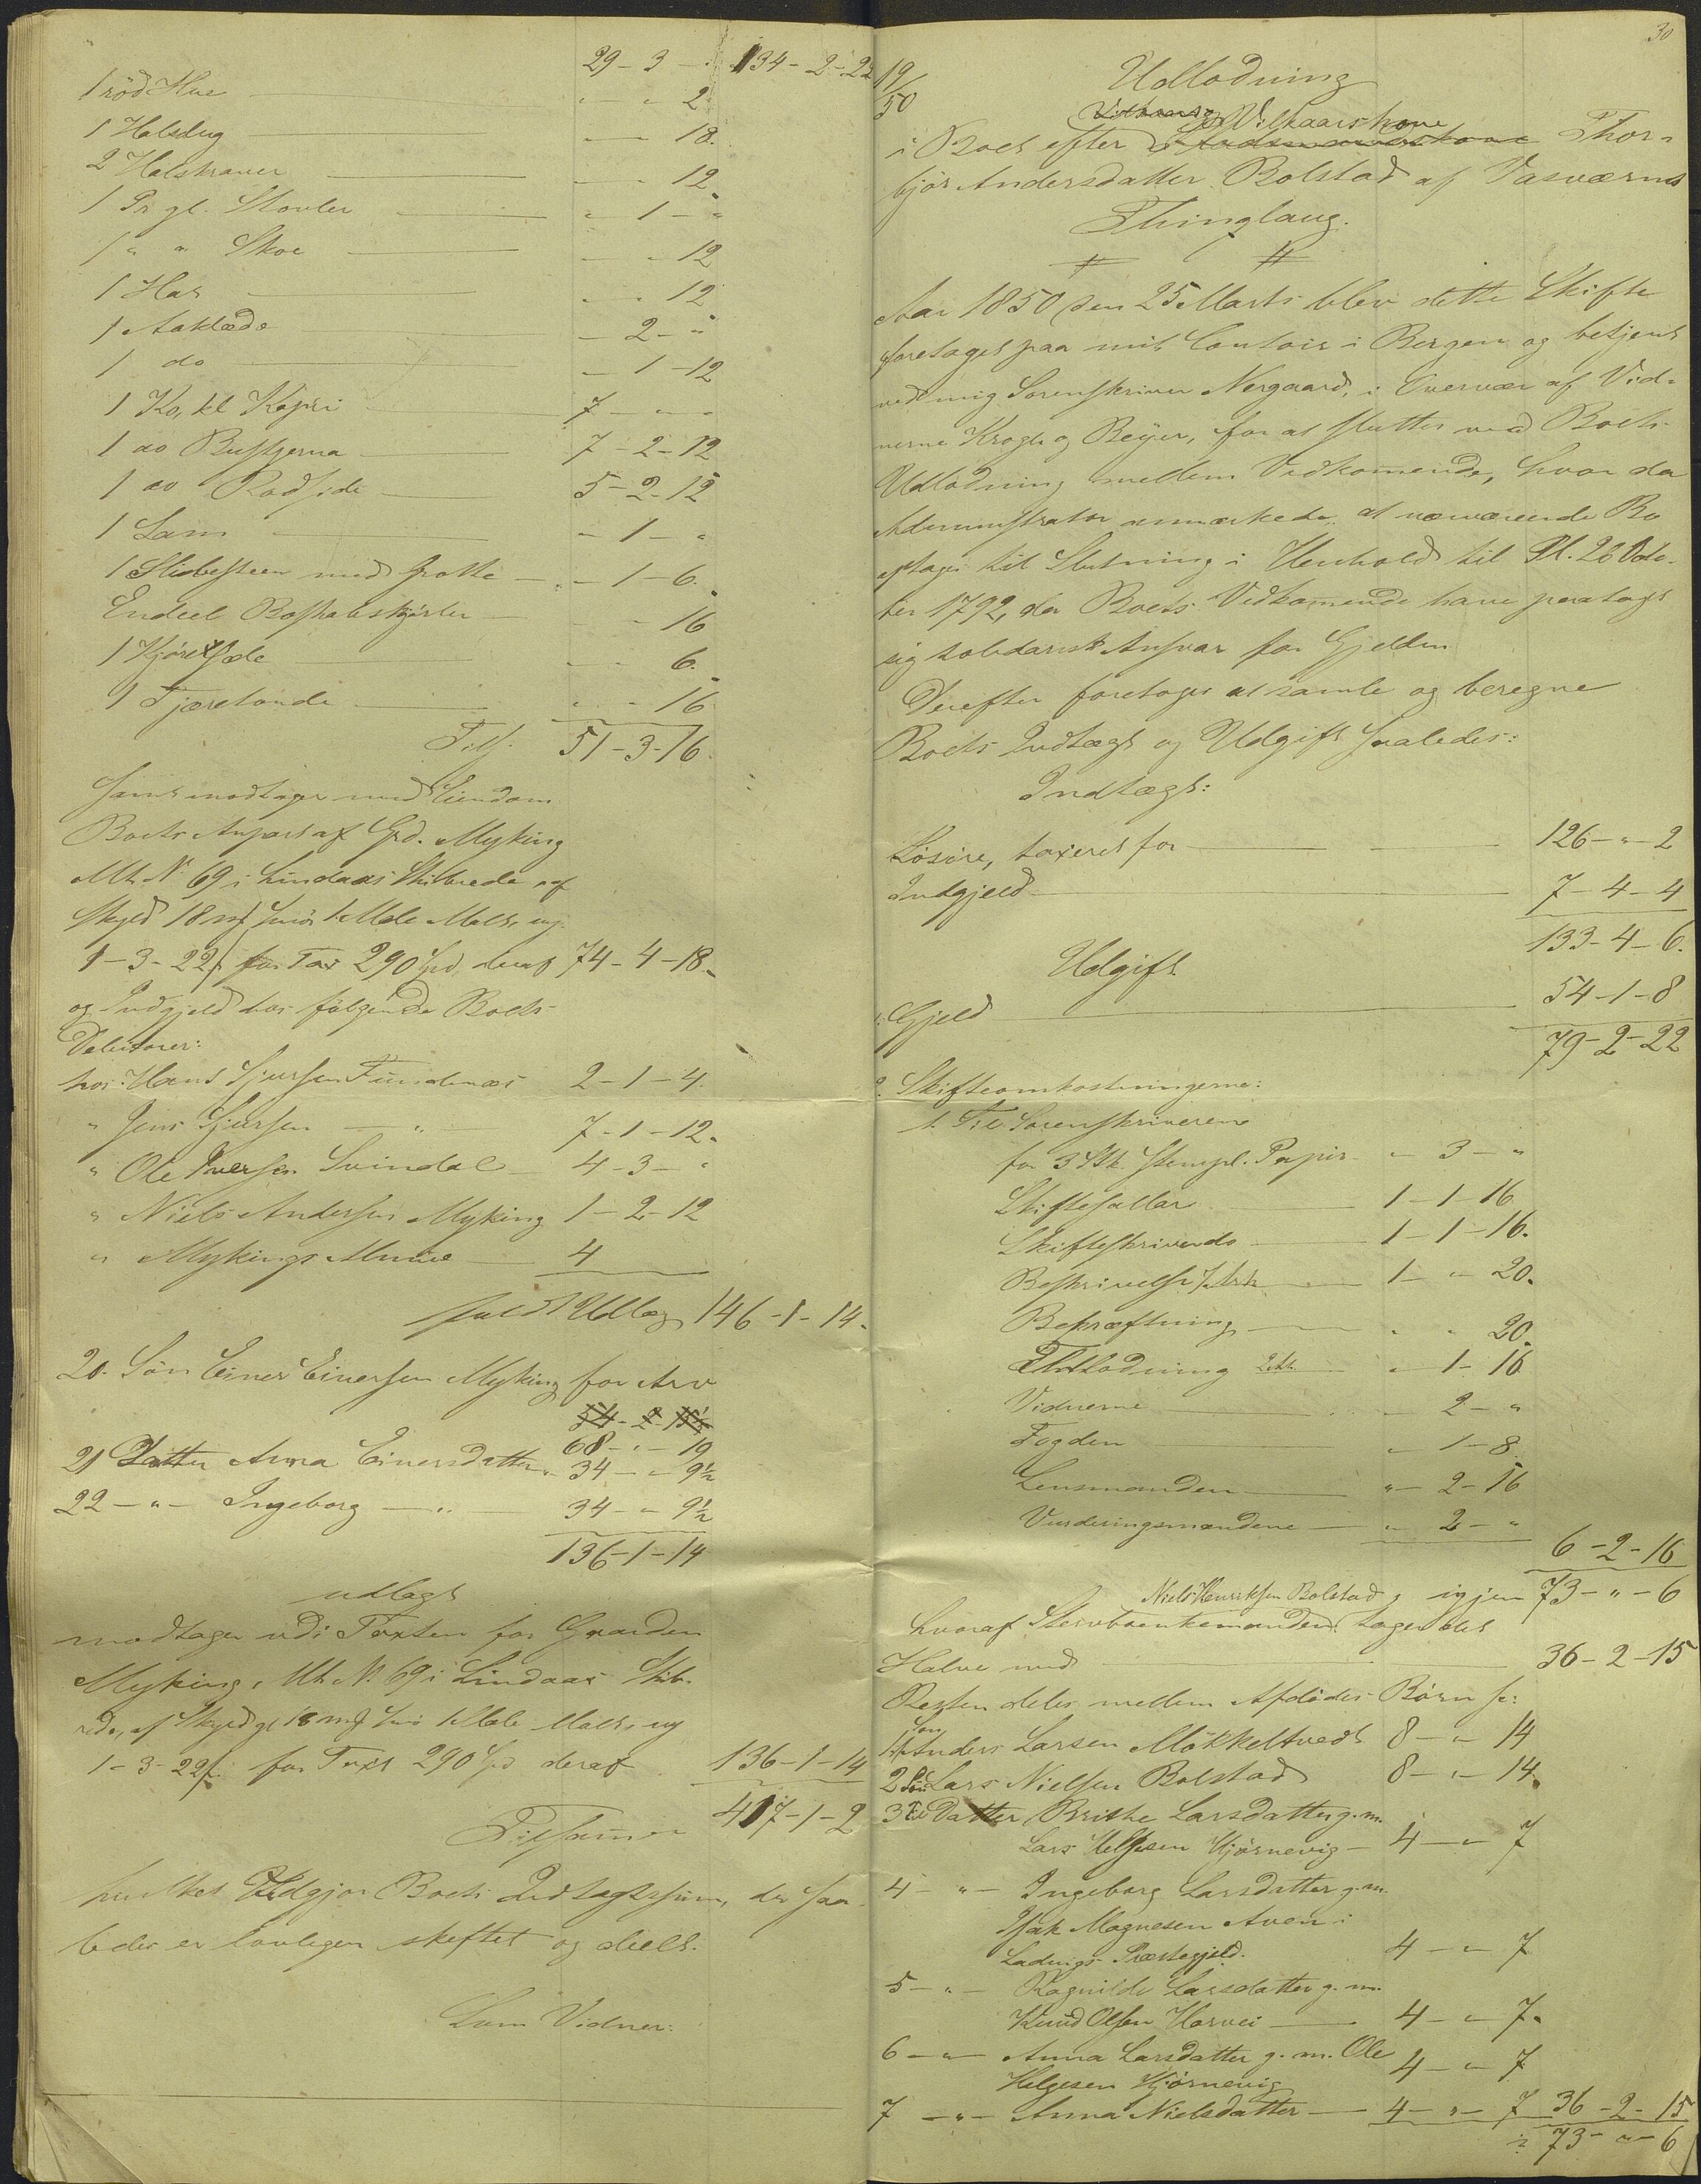 29 - 3 - " 134 - 2 - 22
1 röd Hue " - " 2
1 Halsdug " - " 18.
2 Halskraver " - " 12
1 Pr gl. Stövler " 1 - "
1 " " Skoe - " 12
1 Hat - " 12
1 Aaklæde - 2 - "
1 do - 1 - 12
1 Ko, kl Kapri 7 - " - "
1 do Busstjerna 7 - 2 - 12
1 do Rodside 5 - 2 - 12
1 Lam - 1 - "
1 Slibesteen med Grotte - 1 - 6.
Endeel Boskabskjørler - " 16
1 Kjöresæde - " 6.
1 Tjæretønde " - " 16
Tils. 51 - 3 - 16.
samt modtager med Eiendom
Boets Anpart af Grd. Myking
Mt. N. 69 i Lindaas Skibrede af
Skyld 18 mf Smör 1 Mele Malt, ny
1 - 3 - 22 for Tax 290 Spd, deraf 74 - 4 - 18
og Indgjeld hos følgende Boets
Debitorer:
hos Hans Sjursen Fundenæs 2 - 1 - 4.
" Jens Sjursen - " - 7 - 1 - 12.
" Ole Iversen Svindal 4 - 3 - "
" Niels Andersen Myking 1 - 2 - 12
" Mykings 4
fuldt Udlæg 146 - 1 - 14.
20. Sön Einer Einersen Myking for Arv
54 - 2 - 15½
68 - " - 19
21 Datter Anna Einersdatter 34 - " 9½
22 - " - Ingeborg - " - 34 - " 9½
136 - 1 - 14
udlagt
modtager udi Taxten for Gaarden
Myking, Mt. N. 69 i Lindaas Skib-
rede, af Skyld gl 18 mf Smö 1 Mele Malt, ny
1 - 3 - 22 for Taxt 290 Spd deraf 136 - 1 - 14
Tilsammen 417 - 1 - 2
hvilket Udgjør Boets Indtægtssum, der saa-
ledes er lovligen skiftet og deelt.
Som Vidner:
30
19/50
Udlodning
Vilkaarskone
i Boet efter Thor-
bjør Andersdatter Bolstad af Vasværns
Thinglaug.
Aar 1850 den 25 Marts blev dette Skifte
foretaget paa mit Contoir i Bergen og betjent
ved mig Sorenskriver Nergaard, i Overvær af Vid-
nerne Krogh og Beyer, for at slutte med Boets
Udlodning mellem Vedkommende, hvor da
Administrator anmærkede at nærværende Bo
optages til Slutning i Henhold til Pl. 26 Octo-
ber 1792, da Boets Vedkommende have paataget
sig solidarisk Ansvar for Gjelden
Derefter foretoges at samle og beregne
Boets Indtægt og Udgift saaledes:
Indtægt:
Lösöre, taxeret for 126 - " - 2
Indgjeld 7 - 4 - 4
133 - 4 - 6.
Udgift
1. Gjeld 54 - 1 - 8
79 - 2 - 22
2. Skifteomkostningerne:
1. Til Sorenskriveren
for 3 Stk. Stempl. Papir " 3 - "
Skiftesallar 1 - 1 - 16
Skifteskriverdo 1 - 1 - 16.
Beskrivelse 7 Ark 1 - " - 20.
Bekræftning " " 20.
Udlodning 2 Ark " 1 - 16
Vidnerne 2 - "
Fogden " 1 - 8
Lensmanden " - 2 - 16
Vurderingsmændene " 2 - "
6 - 2 - 16
igjen 73 - " - 6
Niels Henriksen Bolstad,
hvoraf Stervboenkemanden tager det
Halve med 36 - 2 - 15
Resten deles mellem Afdødes Börn sc:
1 Sön Anders Larsen Mökkeltvedt 8 - " 14
2 Sön Lars Nielsen Bolstad 8 - " - 14.
3 Datter Brithe Larsdatter g. m.
Lars Helgesen Hjörnevig 4 - " 7
4 - " - Ingeborg Larsdatter g. m.
Isak Magnesen Aven i
Ladvigs Præstegjeld. 4 - " 7
5 - " - Ragnilde Larsdatter g. m.
Knud Olsen Horvei 4 - " 7.
6 - " - Anna Larsdatter g. m. Ole
Helgesen Hjörnevig 4 - " 7
7 - " - Anna Nielsdatter 4 - " - 7 36 - 2 - 15
73 - " - 6